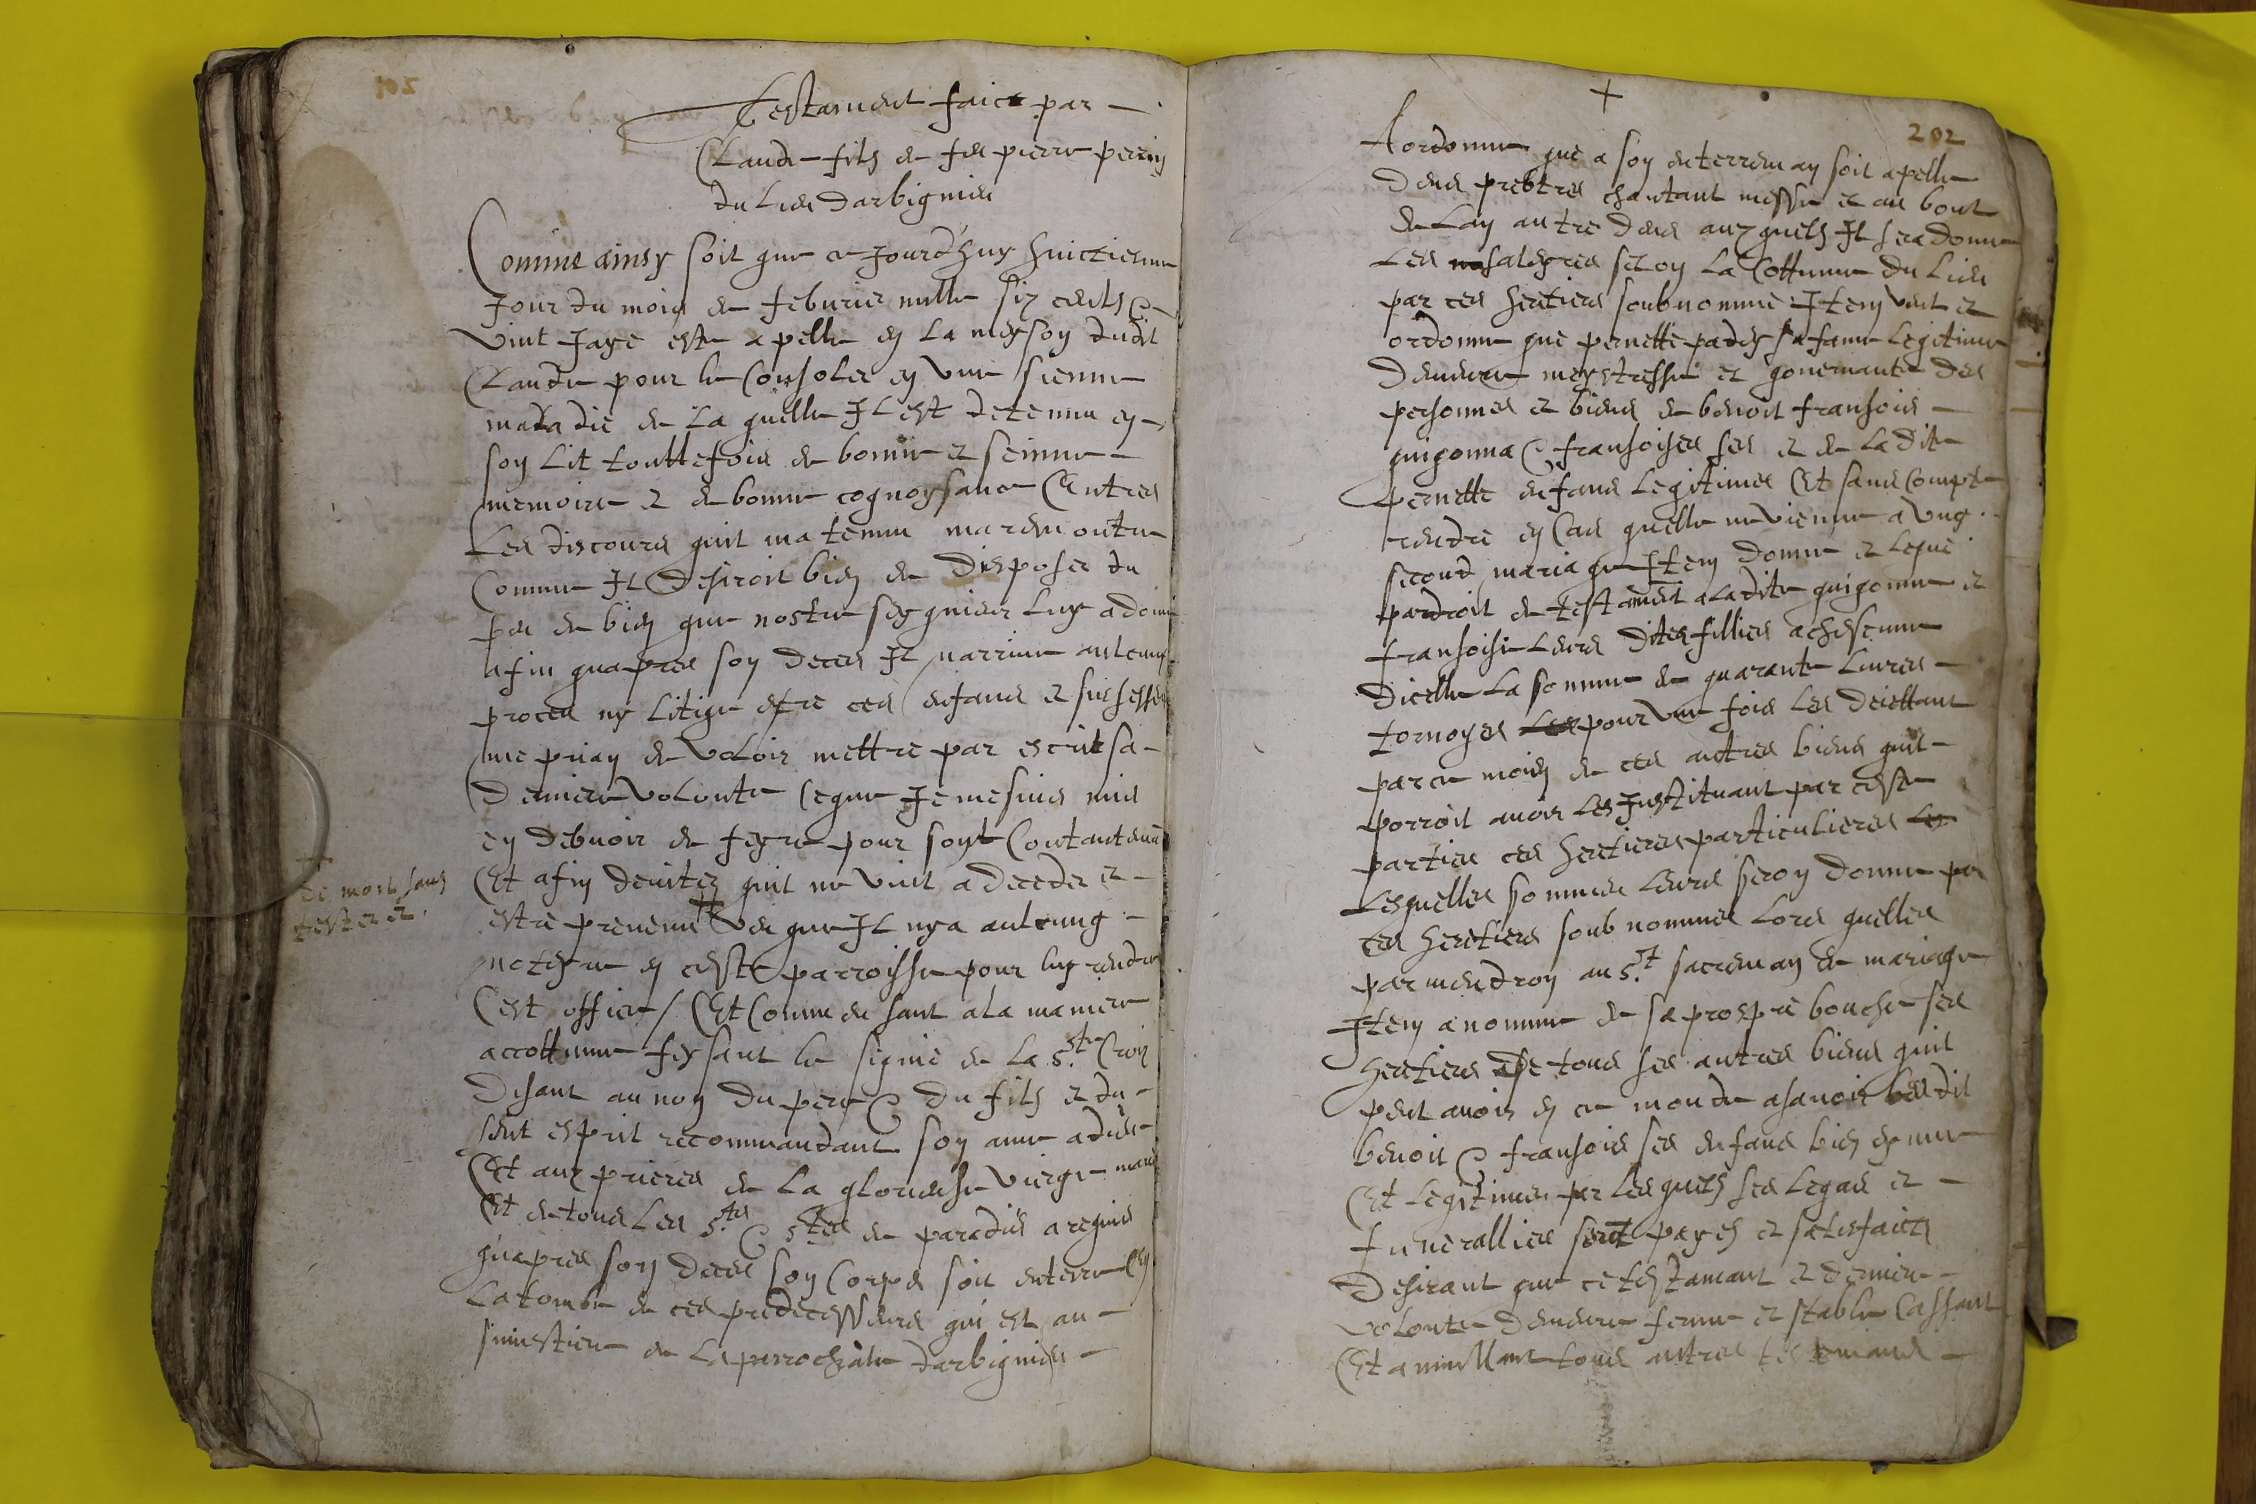 Testament faict par
Claude fils de feu pierre perrin
du lieu darbignieu
Comme ainsy soit que ce Jourdhuy huictieme
Jour du mois de feburier mille six cents &
vint Jaye este apelle en la meyson dudit
Claude pour le Consoler en une sienne
maladie de la quelle Il est detenu en
son lit touttefois de bonne et seinne
memoire et de bonne cognoysance Entres
Les discours quil ma tenu ma remontre
Comme Il Desiroit bien de Disposer du
peu de bien que nostre seygnieur luy a donne
afin quapres son deces Il narrive aulcung
proces ny litige entre ces enfans et
me priay de voloir mettre par escrit sa
Derniere volonte Ceque Je me suis mis
en debvoir de feyre pour sont Contantemt
Et afin deviter quil ne vint a deceder et
estre prevenu veu que Il nya aulcung
noteyre en ceste parroisse pour luy rendre
Cest office / Et Commensant a la maniere
accottume feysant le signe de la Ste Croix
Disant au nom du pere & du fils et du
sent esprit recommandant son ame a dieu
Et aux prieres de la glorieuse vierge marie
Et de tous les Sts & Stes de paradis a requis
quapres son deces son Corps soit enterre en
La tombe de ces predecesseurs qui est au
simestiere de la parrochiale darbignieu
de mort sans
tester et
202
A ordonne que a son enterreman soit apelle
Deus prebtres chantant messe et au bout
de Lan autre deus auxquels Il sera donne
Les saleyres selon la Cottume du lieu
par ces heretiers soubnomme Item veut et
ordonne que pernette padey sa fame legitime
Demeure meystresse et gouvernante des
personnes et biens de benoit fransois
guigonna & fransoises ses et de la dite
pernette enfans legitimes Et sans Compte
rendre en Cas quelle ne vienne a ung
second mariage Item donne et legue
par droit de testament a la dite guigonne et
fransoise leurs dites fillies a chescune
dicelle la somme de quarante livres
tornoyes pour une fois les deiettant
par ce moien de ces autres biens quil
porroit avoir les Instituant par ceste
partie ces heretieres particulieres
Lesquelles sommes leurs seron donne par
ces heretiers soub nommes lors quelles
parviendron au St sacreman de mariage
Item a nomme de sa prospre bouche ses
heretiers de tous ses autres biens quil
peut avoir en ce monde asavoir lesdit
benoit & fransois ses enfans bien eyme
Et legitimes par lesquels ses legas et
funerallies seront payes et satisfaicts
Desirant que ce testamant et derniere
volonte demeure ferme et stable Cassant
Et annullant tous autres testamans